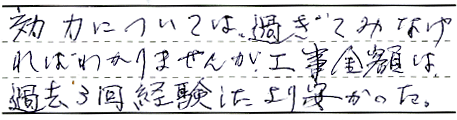 効力については、過ぎてみなけ
ればわかりませんが、工事金額は、
過去3回経験したより安かった。